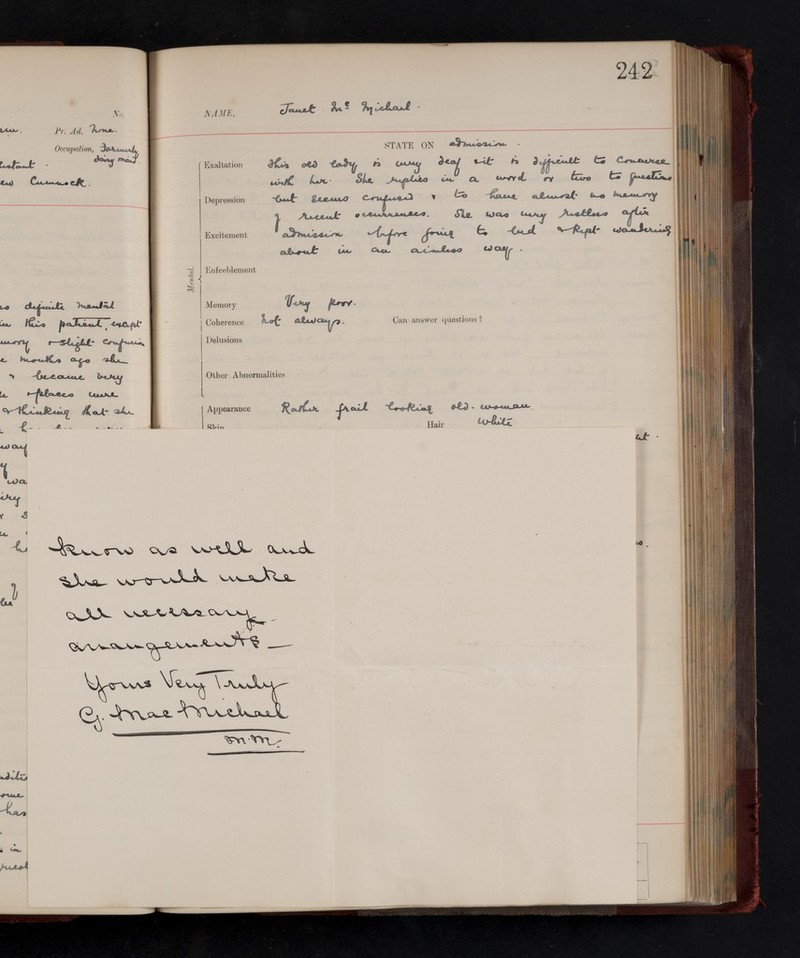 No.
Pr. Ad. None.
Occupation, Formerly
dairy maid.
Cumnock.
definite mental
in this patient, except
slight confusion
months ago she
became very
places where
thinking that she
way
242
NAME, Janet McMichael.
STATE ON admission.
Exaltation This old lady is very deaf & it is difficult to converse
with her. She replies in a word or two to questions
Depression but seems confused & to have almost no memory
of recent occurrences. She was very restless after
Excitement admission before going to bed & kept wandering
about in an aimless way.
Mental.
Enfeeblement
Memory Very poor.
Coherence Not always. Can answer questions?
Delusions
Other Abnormalities
Appearance Rather frail looking old woman.
Skin Hair White
know as well and
she would make
all necessary
arrangements —
Yours Very Truly
G. MacMichael
has
in